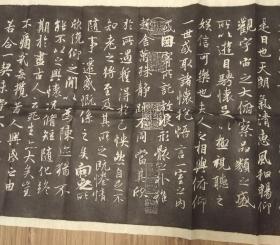 是日也天朗氣清惠風和暢仰
觀宇宙之大俯察品類之盛
所以遊目騁懷足以極視聽之
娛信可樂也夫人之相與俯仰
一世或取諸懷抱悟言一室之內
或因寄所託放浪形骸之外雖
趣舍萬殊靜躁不同當其欣
於所遇蹔得於己怏然自足不
知老之將至及其所之既惓情
隨事遷感慨係之矣向之所
欣俛仰之間以為陳迹猶不
能不以之興懷況脩短隨化終
期於盡古人云死生亦大矣豈
不痛哉每攬昔人興感之由
若合一契未嘗